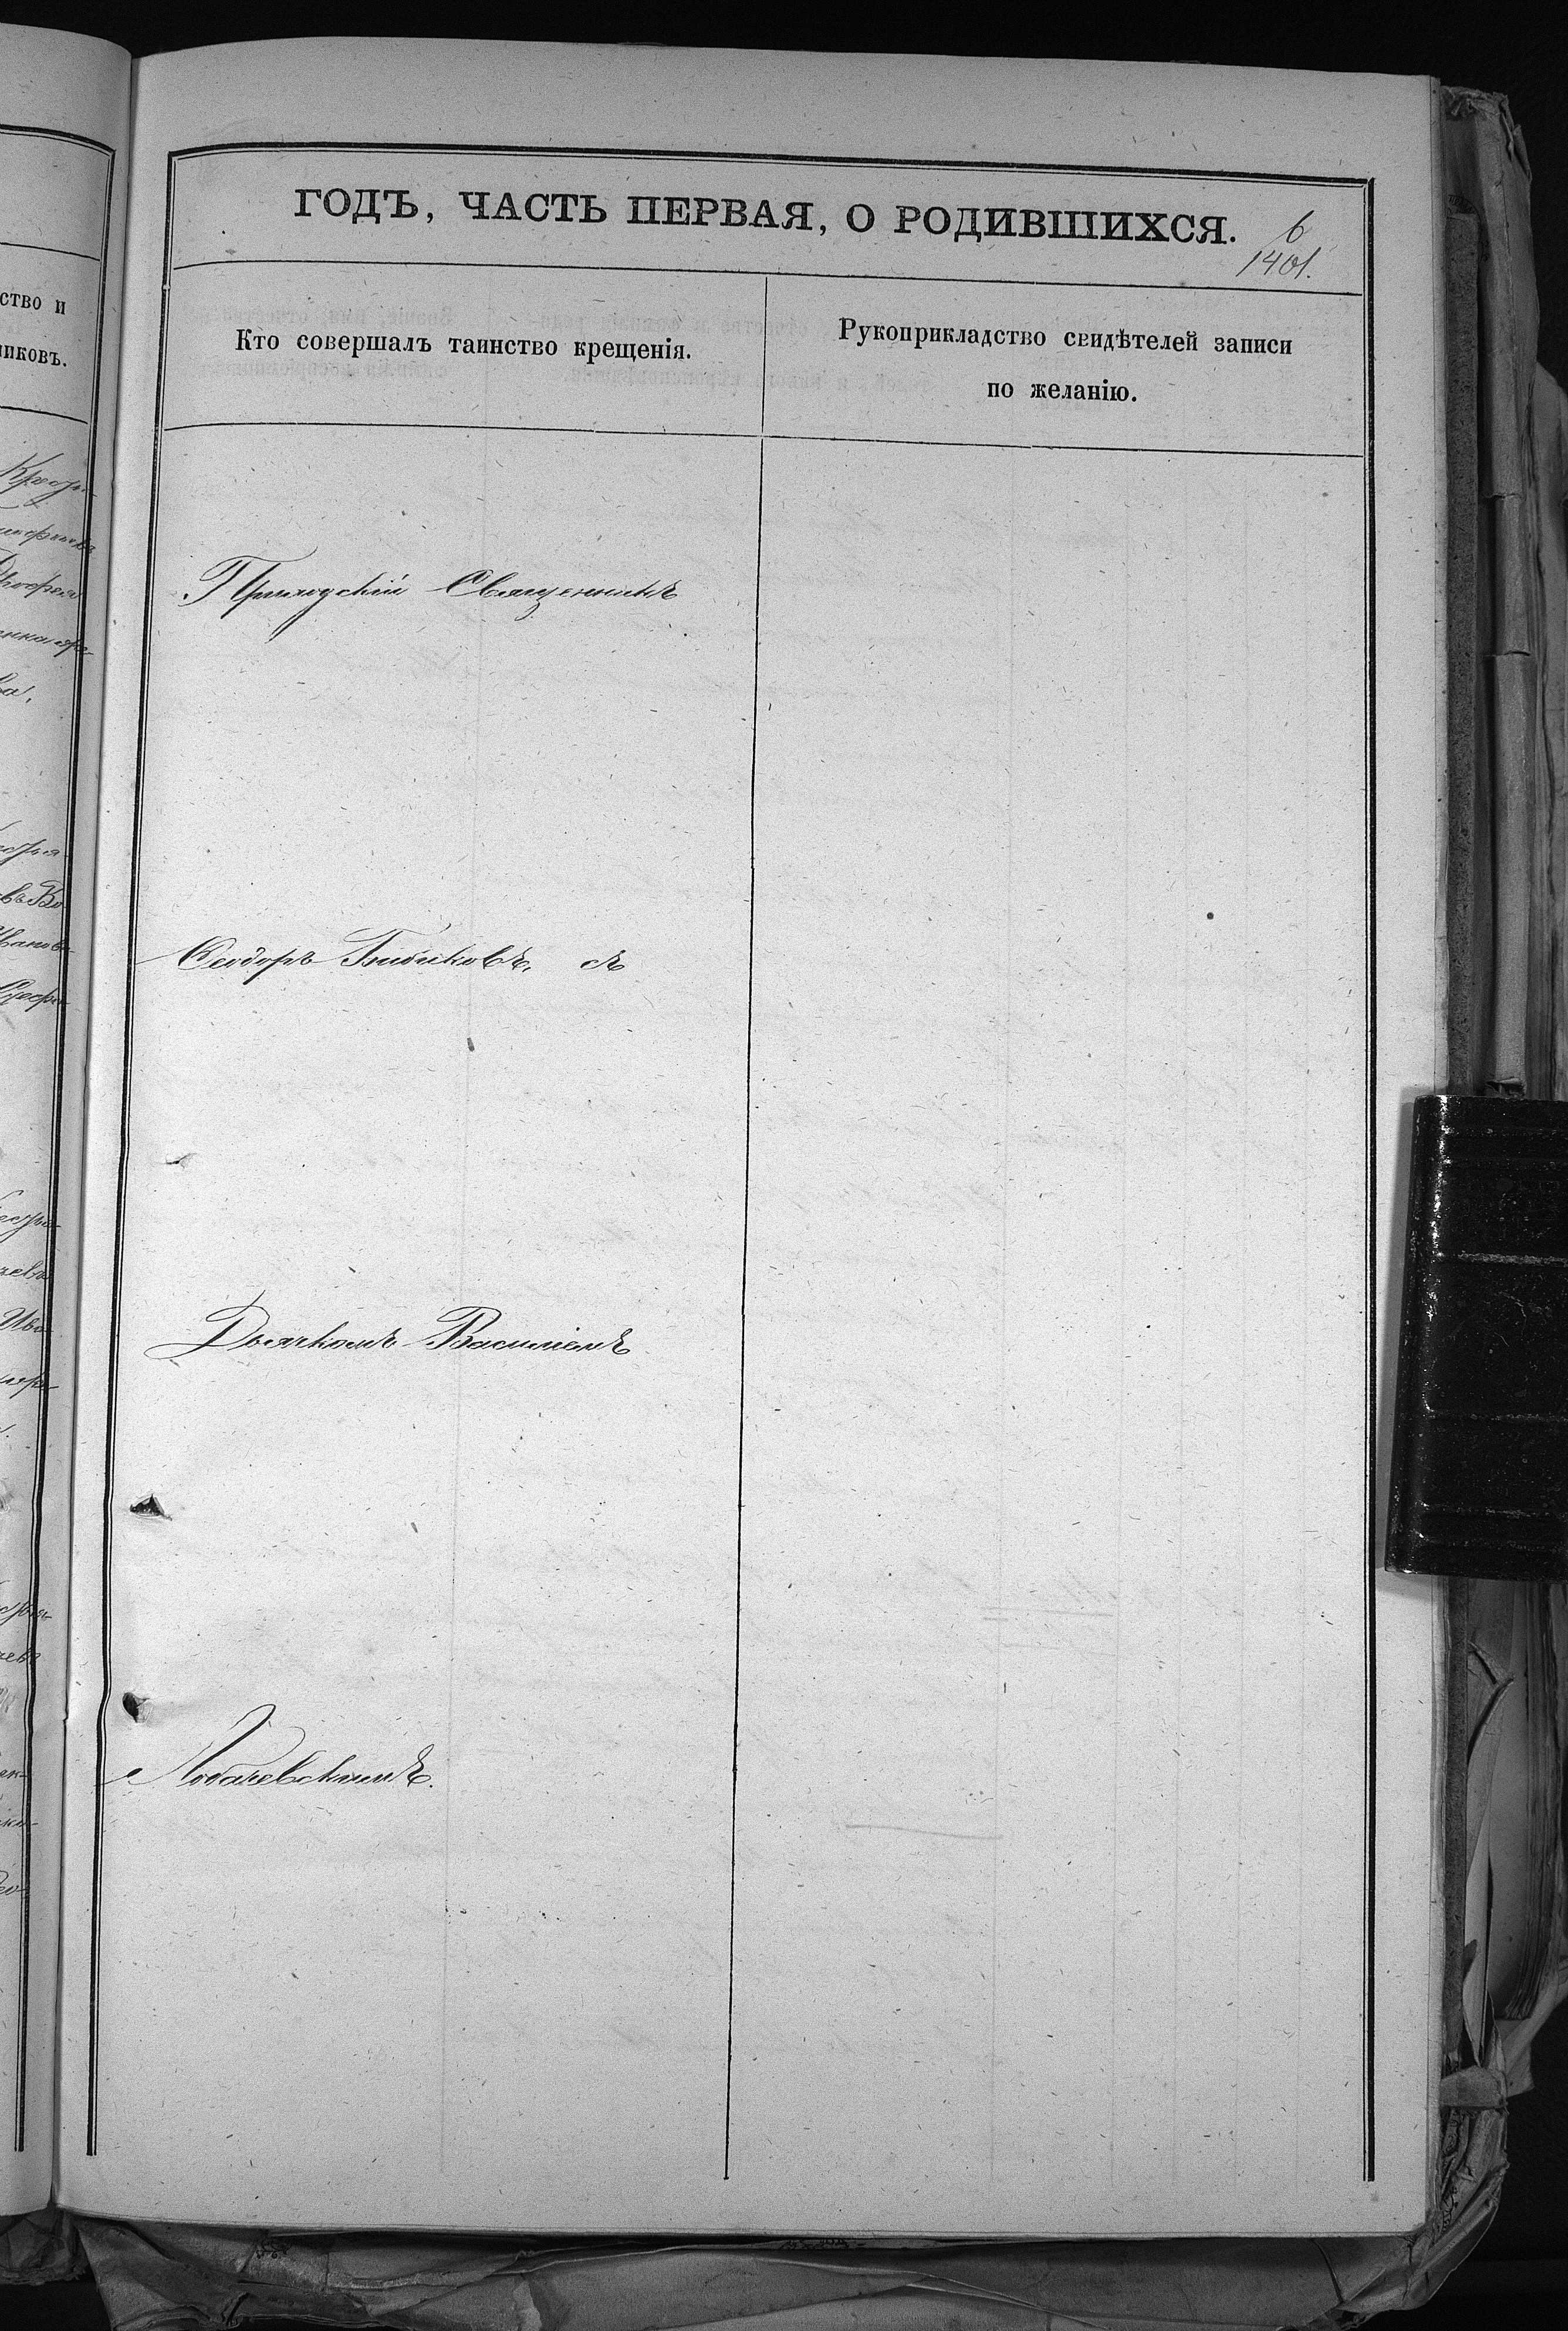 ГОДЪ, ЧАСТЬ ПЕРВАЯ, О РОДИВШИХСЯ.
6
1401.
ство и
никовъ.
Кто совершалъ таинство крещенія.
Рукоприкладство свидѣтелей записи
по желанію.
Приходскій Священникъ
Ѳеодоръ Бибиковъ, съ
Дьячкомъ Василіемъ
Лобачевскимъ.